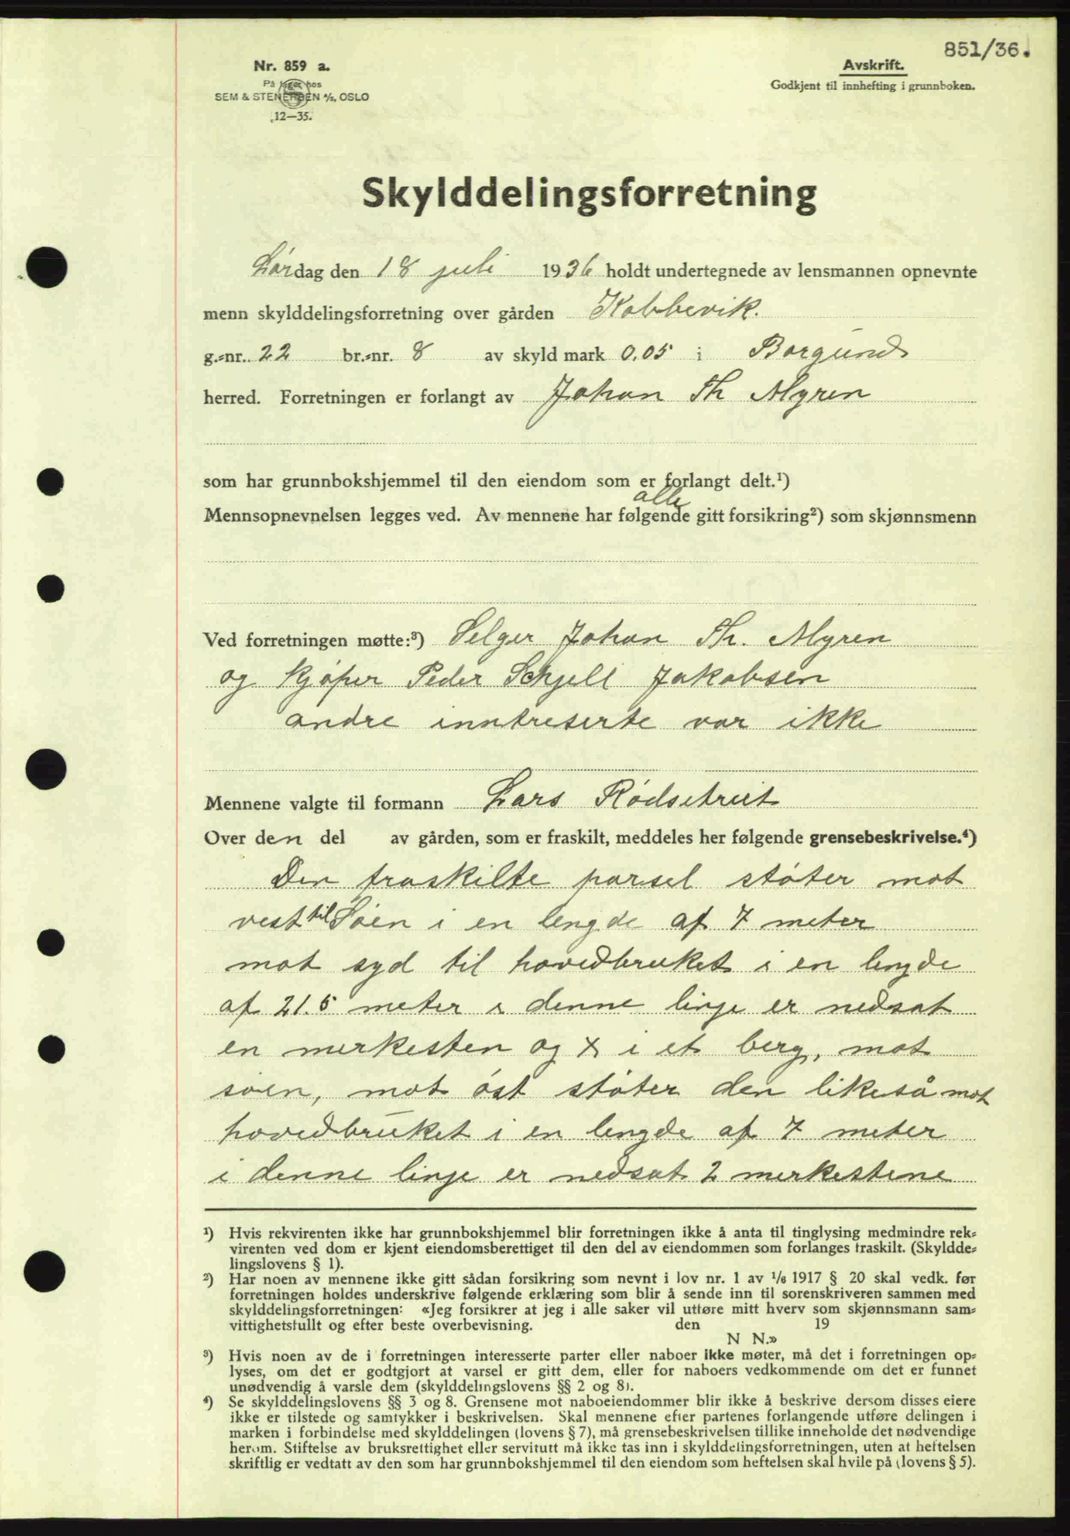 851/36.
Nr. 859 a.
På lager hos
SEM & STENERSEN A/S, OSLO
12—35.
Avskrift.
Godkjent til innhefting i grunnboken.
Skylddelingsforretning
Lørdag den 18 juli 1936 holdt undertegnede av lensmannen opnevnte
menn skylddelingsforretning over gården Kobbevik.
g.-nr. 22 br.-nr. 8 av skyld mark 0.05 i Borgund
herred. Forretningen er forlangt av Johan Th Myren
som har grunnbokshjemmel til den eiendom som er forlangt delt.¹)
alle
Mennsopnevnelsen legges ved. Av mennene har følgende gitt forsikring²) som skjønnsmenn
Ved forretningen møtte:³) Selger Johan Th. Myren
og kjøper Peder Schjell Jakobsen
andre inntreserte var ikke
Mennene valgte til formann Lars Rødsetreit
Over den del av gården, som er fraskilt, meddeles her følgende grensebeskrivelse.⁴)
Den fraskilte parsel støter mot
vest til Søen i en lengde af 7 meter
mot syd til hovedbruket i en lengde
af 21.5 meter i denne linje er nedsat
en merkesten og X i et berg, mot
søen, mot øst støter den likeså mot
hovedbruket i en lengde af 7 meter
i denne linje er nedsat 2 merkestene
¹) Hvis rekvirenten ikke har grunnbokshjemmel blir forretningen ikke å anta til tinglysing medmindre rek-
virenten ved dom er kjent eiendomsberettiget til den del av eiendommen som forlanges fraskilt. (Skyldde-
lingslovens § 1).
²) Har noen av mennene ikke gitt sådan forsikring som nevnt i lov nr. 1 av 1/6 1917 § 20 skal vedk. før
forretningen holdes underskrive følgende erklæring som blir å sende inn til sorenskriveren sammen med
skylddelingsforretningen: «Jeg forsikrer at jeg i alle saker vil utføre mitt hverv som skjønnsmann sam-
vittighetsfullt og efter beste overbevisning. den 19
N N.»
³) Hvis noen av de i forretningen interesserte parter eller naboer ikke møter, må det i forretningen op-
lyses, om det er godtgjort at varsel er gitt dem, eller for naboers vedkommende om det er funnet
unødvendig å varsle dem (skylddelingslovens §§ 2 og 8).
⁴) Se skylddelingslovens §§ 3 og 8. Grensene mot naboeiendommer blir ikke å beskrive dersom disses eiere
ikke er tilstede og samtykker i beskrivelsen. Skal mennene efter partenes forlangende utføre delingen i
marken i forbindelse med skylddelingen (lovens § 7), må grensebeskrivelsen tillike inneholde det nødvendige
herom. Stiftelse av bruksrettighet eller servitutt må ikke tas inn i skylddelingsforretningen, uten at heftelsen
skriftlig er vedtatt av den som har grunnbokshjemmel til den eiendom som heftelsen skal hvile på (lovens § 5).